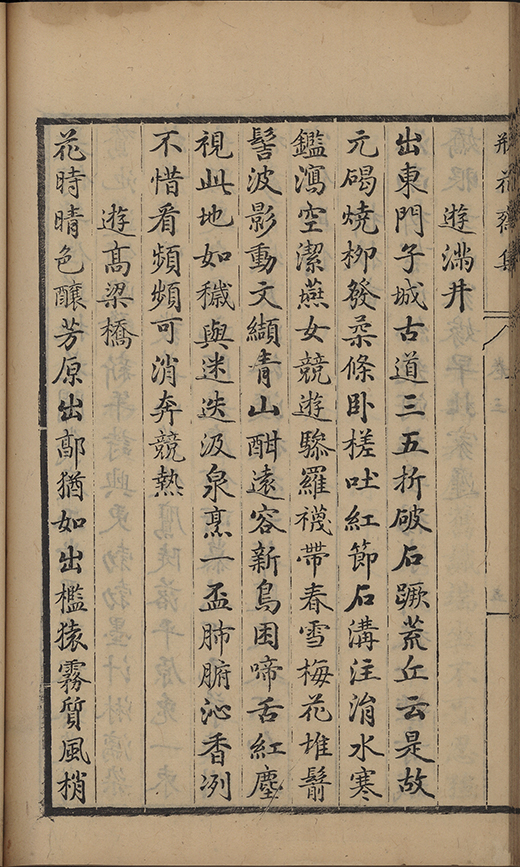 瓶花齋集
卷三
五
遊滿井
出東門子城古道三五折破石蹶荒丘云是故
元碣燒柳發柔條卧槎吐紅節石溝注涓水寒
鑑瀉空潔燕女競遊驂羅襪帶春雪梅花堆鬋
髻波影動文纈青山酣遠容新鳥困啼舌紅塵
視此地如穢與迷迭汲泉烹一盃肺腑沁香冽
不惜看頻頻可消奔競熱
遊高梁橋
花時晴色釀芳原出鄗猶如出檻猿霧質風梢